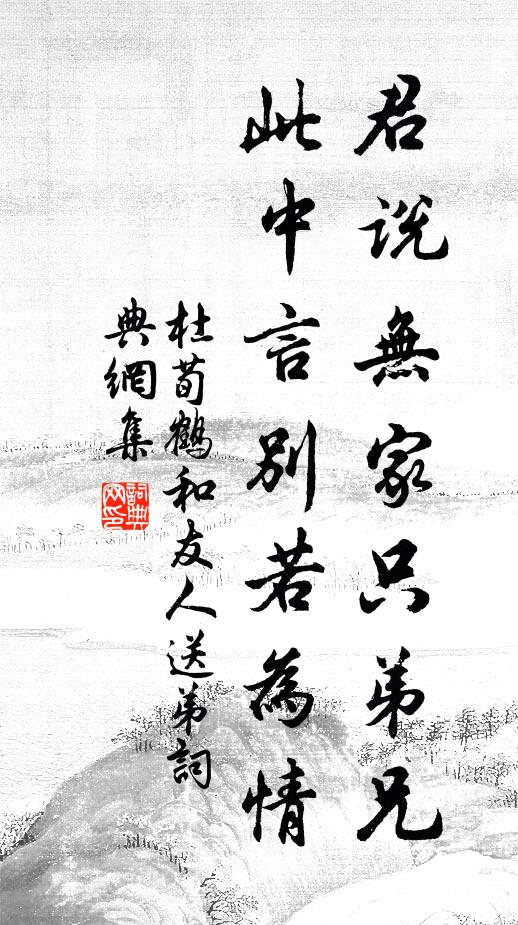 君説無家只弟兄
此中言别若為情
杜荀鶴和友人送弟詞
典網集
詞典
网印